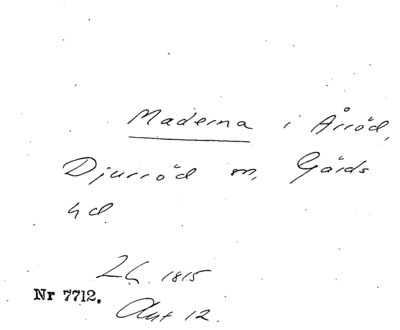 Maderna i Årröd,
Djurröd sn, Gärds
hd.
LG. 1815
Nr 7712.
Akt 12.